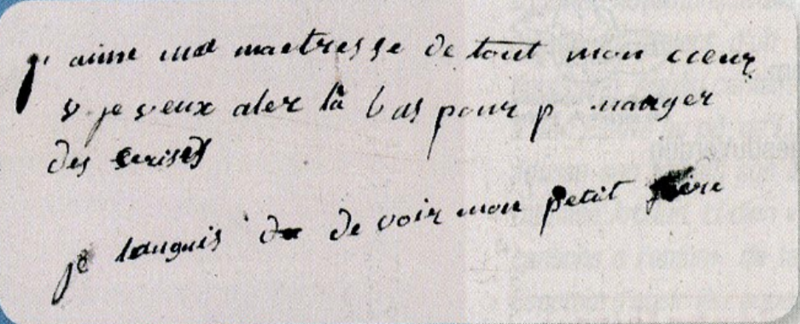 j' aime ma maetresse de tout mon cœur
v je veux aler là bas pour p manger
des serises
je languis de de voir mon petit frère